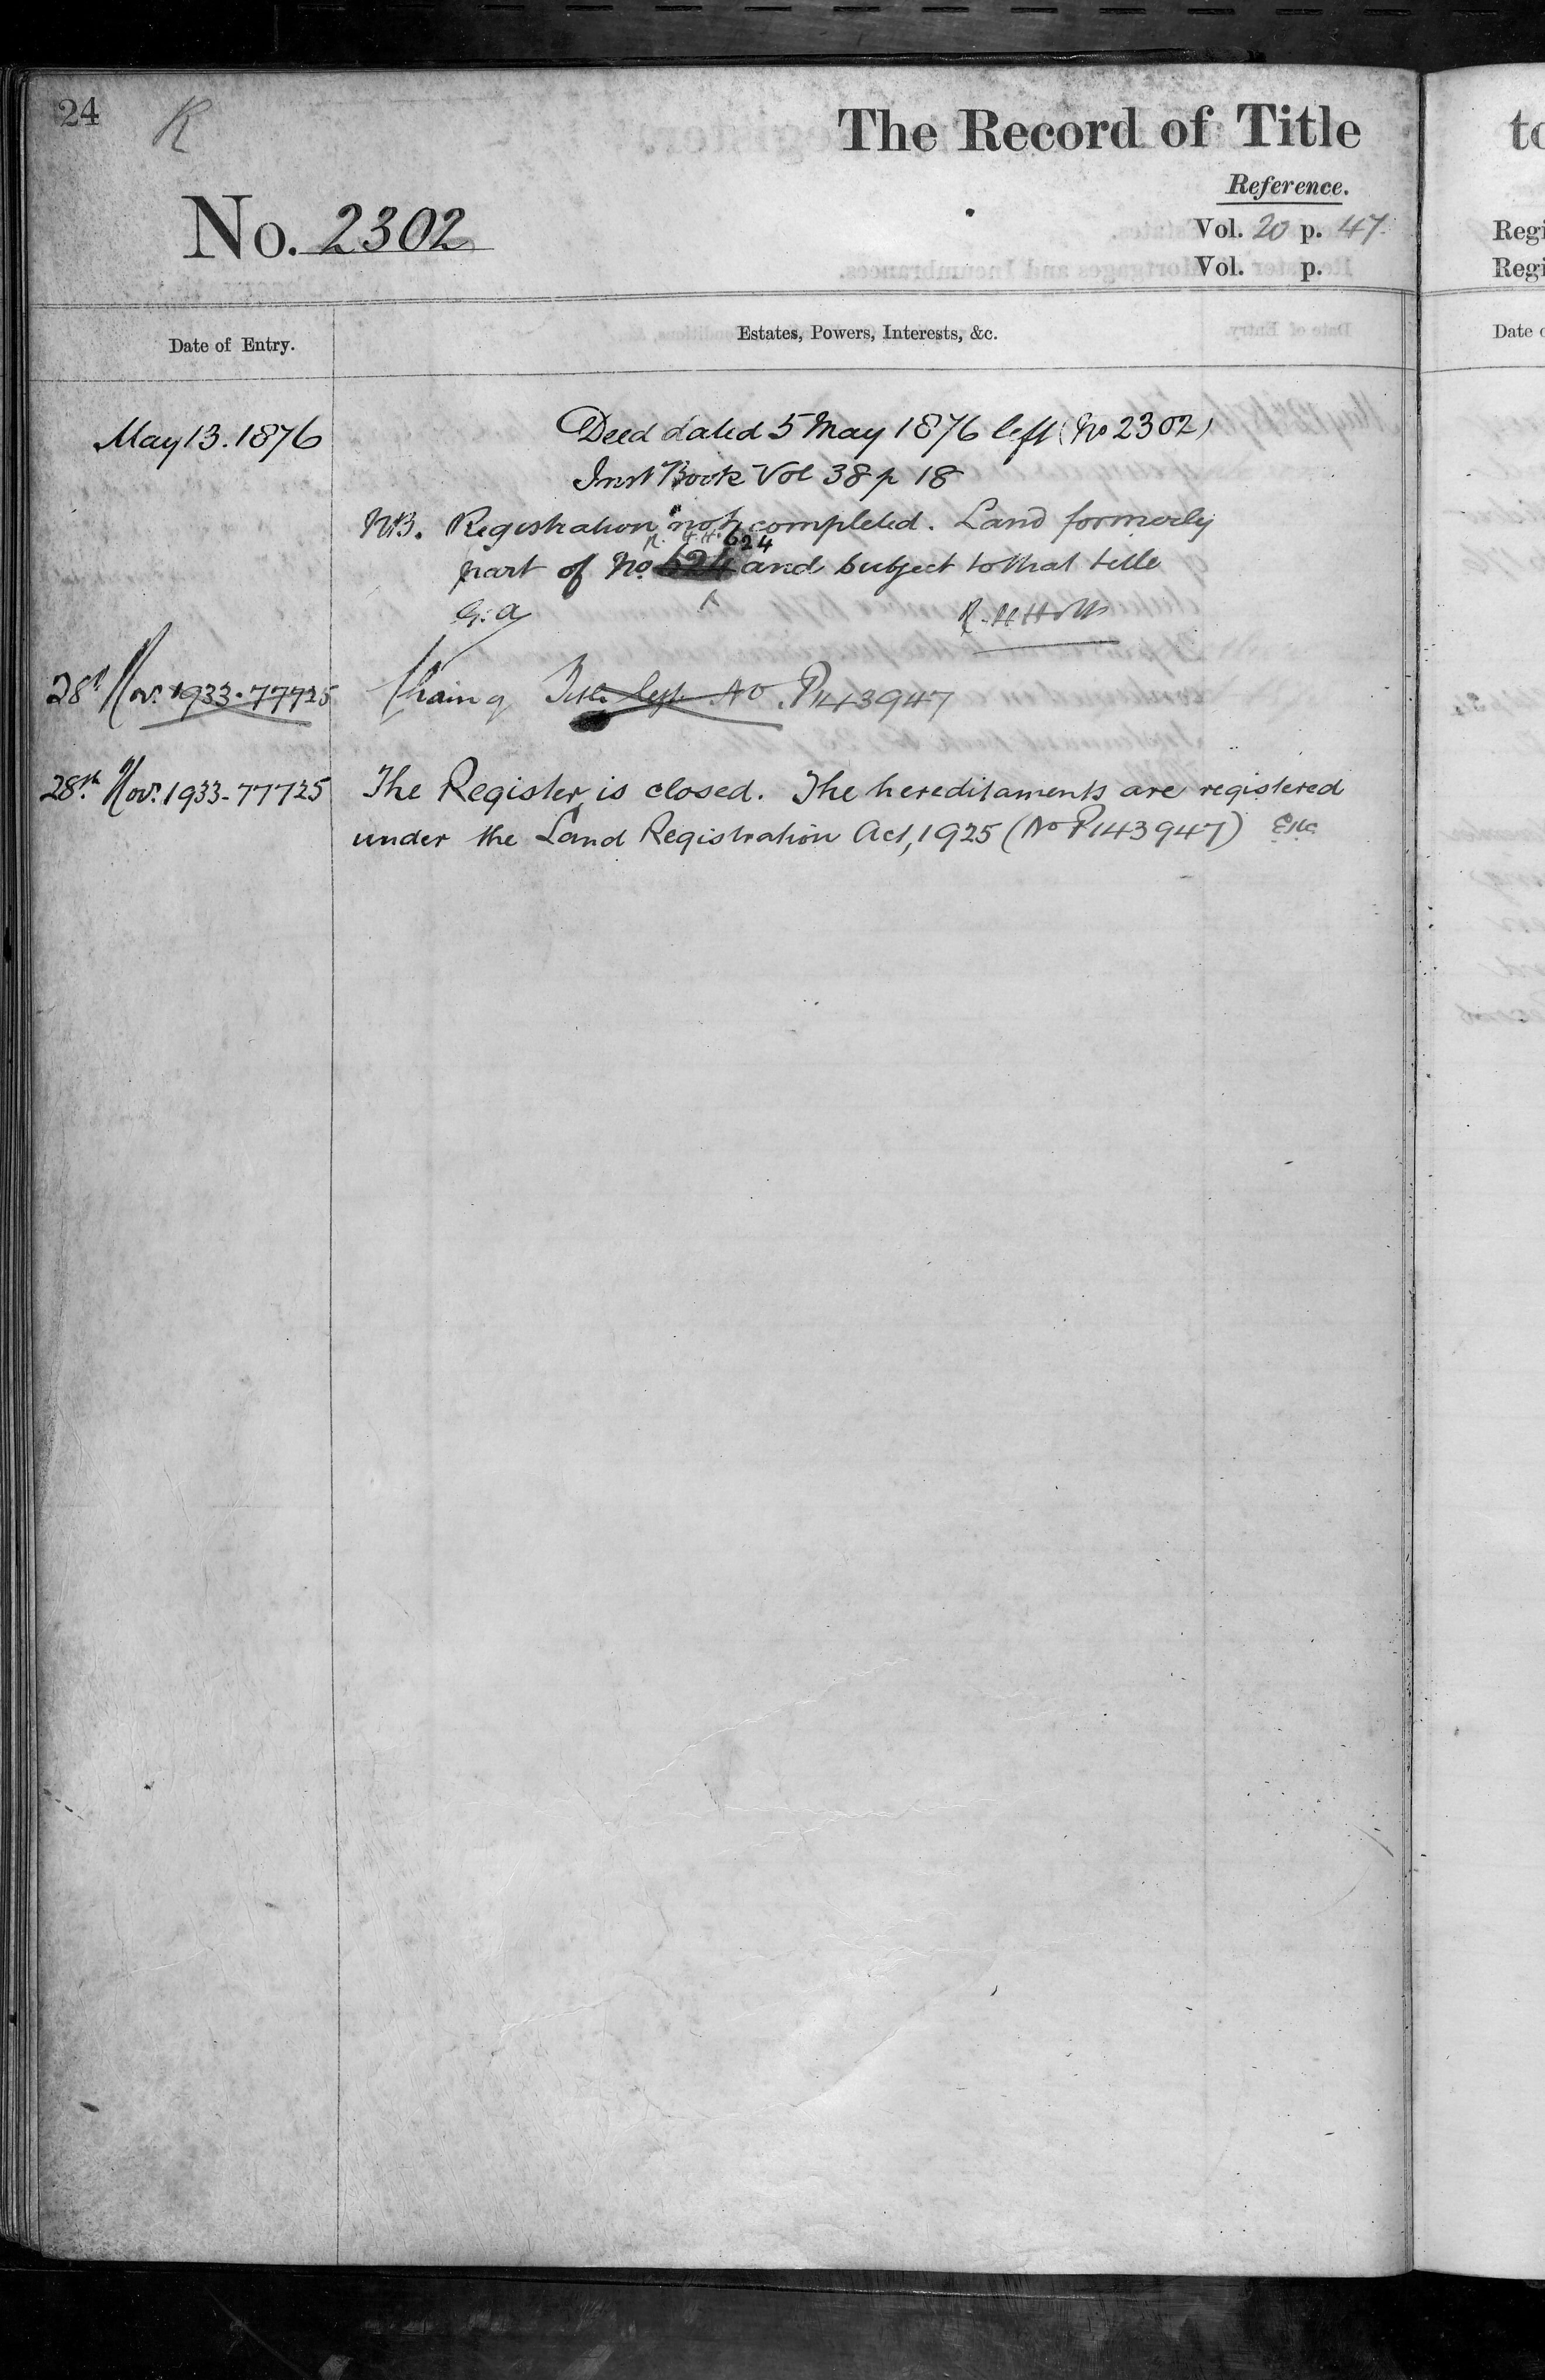 24 R
The Record of Title
Reference.
No. 2302
Vol. 20 p. 47
Vol. p.
Date of Entry.
Estates, Powers, Interests, &c.
May 13. 1876
Deed dated 5 May 1876 left (No 2302)
Inst Book Vol 38 p 18
NB. Registration not completed. Land formerly
624
part of No. 624 and subject to that title
G. A
R. H Holt
28th Nov. 1933. 77725 Chain of Title left No. P143947
28th Nov. 1933 - 77725 The Register is closed. The hereditaments are registered
under the Land Registration Act, 1925 (No P143947)
to
Regi
Regi
Date o